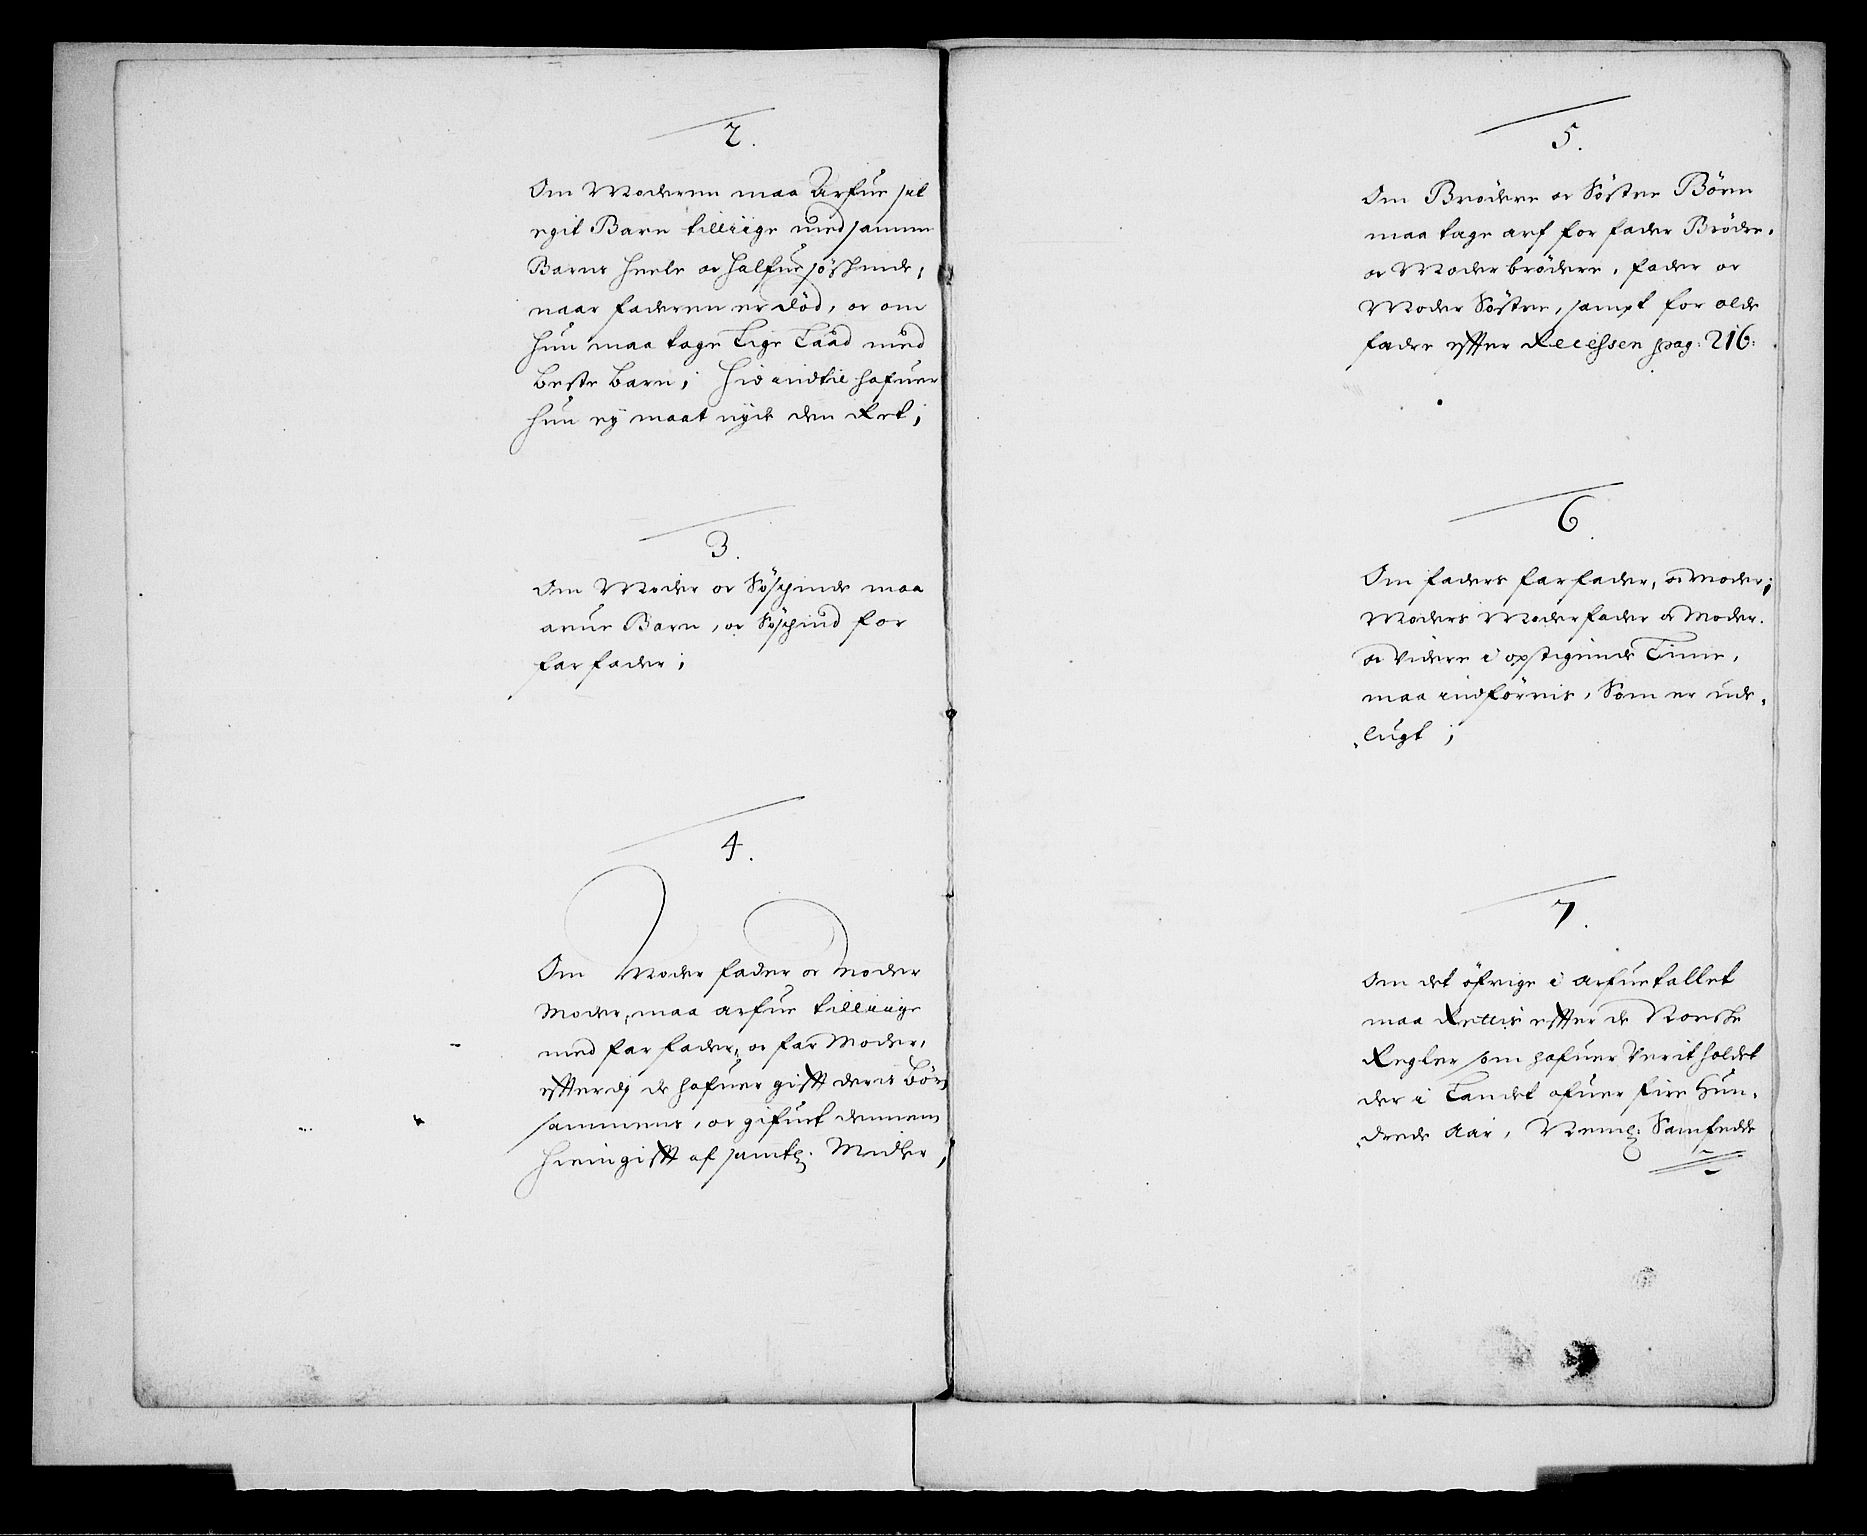 2.
Om Moderen maa Arfue sit
egit Barn tilliige med samme
Barns heele oc halfue söskende,
naar faderen er död, oc om
hun maa tage Lige Laad med
beste barn; hid indtil hafuer
hun ey maat nyde den Ret;
3.
Om Moder oc Söskinde maa
arue Barn, oc Söskind for
far fader;
4.
Om Moder fader oc Moder
Moder, maa arfue tilliige
med far fader, oc far Moder,
effterdj de hafuer gifft deris Börn
sammens, oc gifuet dennem
hiemgifft af samtl: Midler,
5.
Om Brödere oc Söstre Börn
maa tage arf for fader Brödre,
oc Moder brödere, fader oc
Moder Söstre, sampt for olde
fadre effter Recessen pag: 216:
6
Om faders far fader, oc Moder;
Moders Moder fader oc Moder.
oc Videre i opstigende Linie,
maa indföris, Som er ude,
lugt;
7.
Om det öfrige i arfuetallet
maa Rettis effter de Norske
Regler som hafuer Verit holdet
der i Landet ofuer fire Hun,
drede Aar, Neml: Samfedde